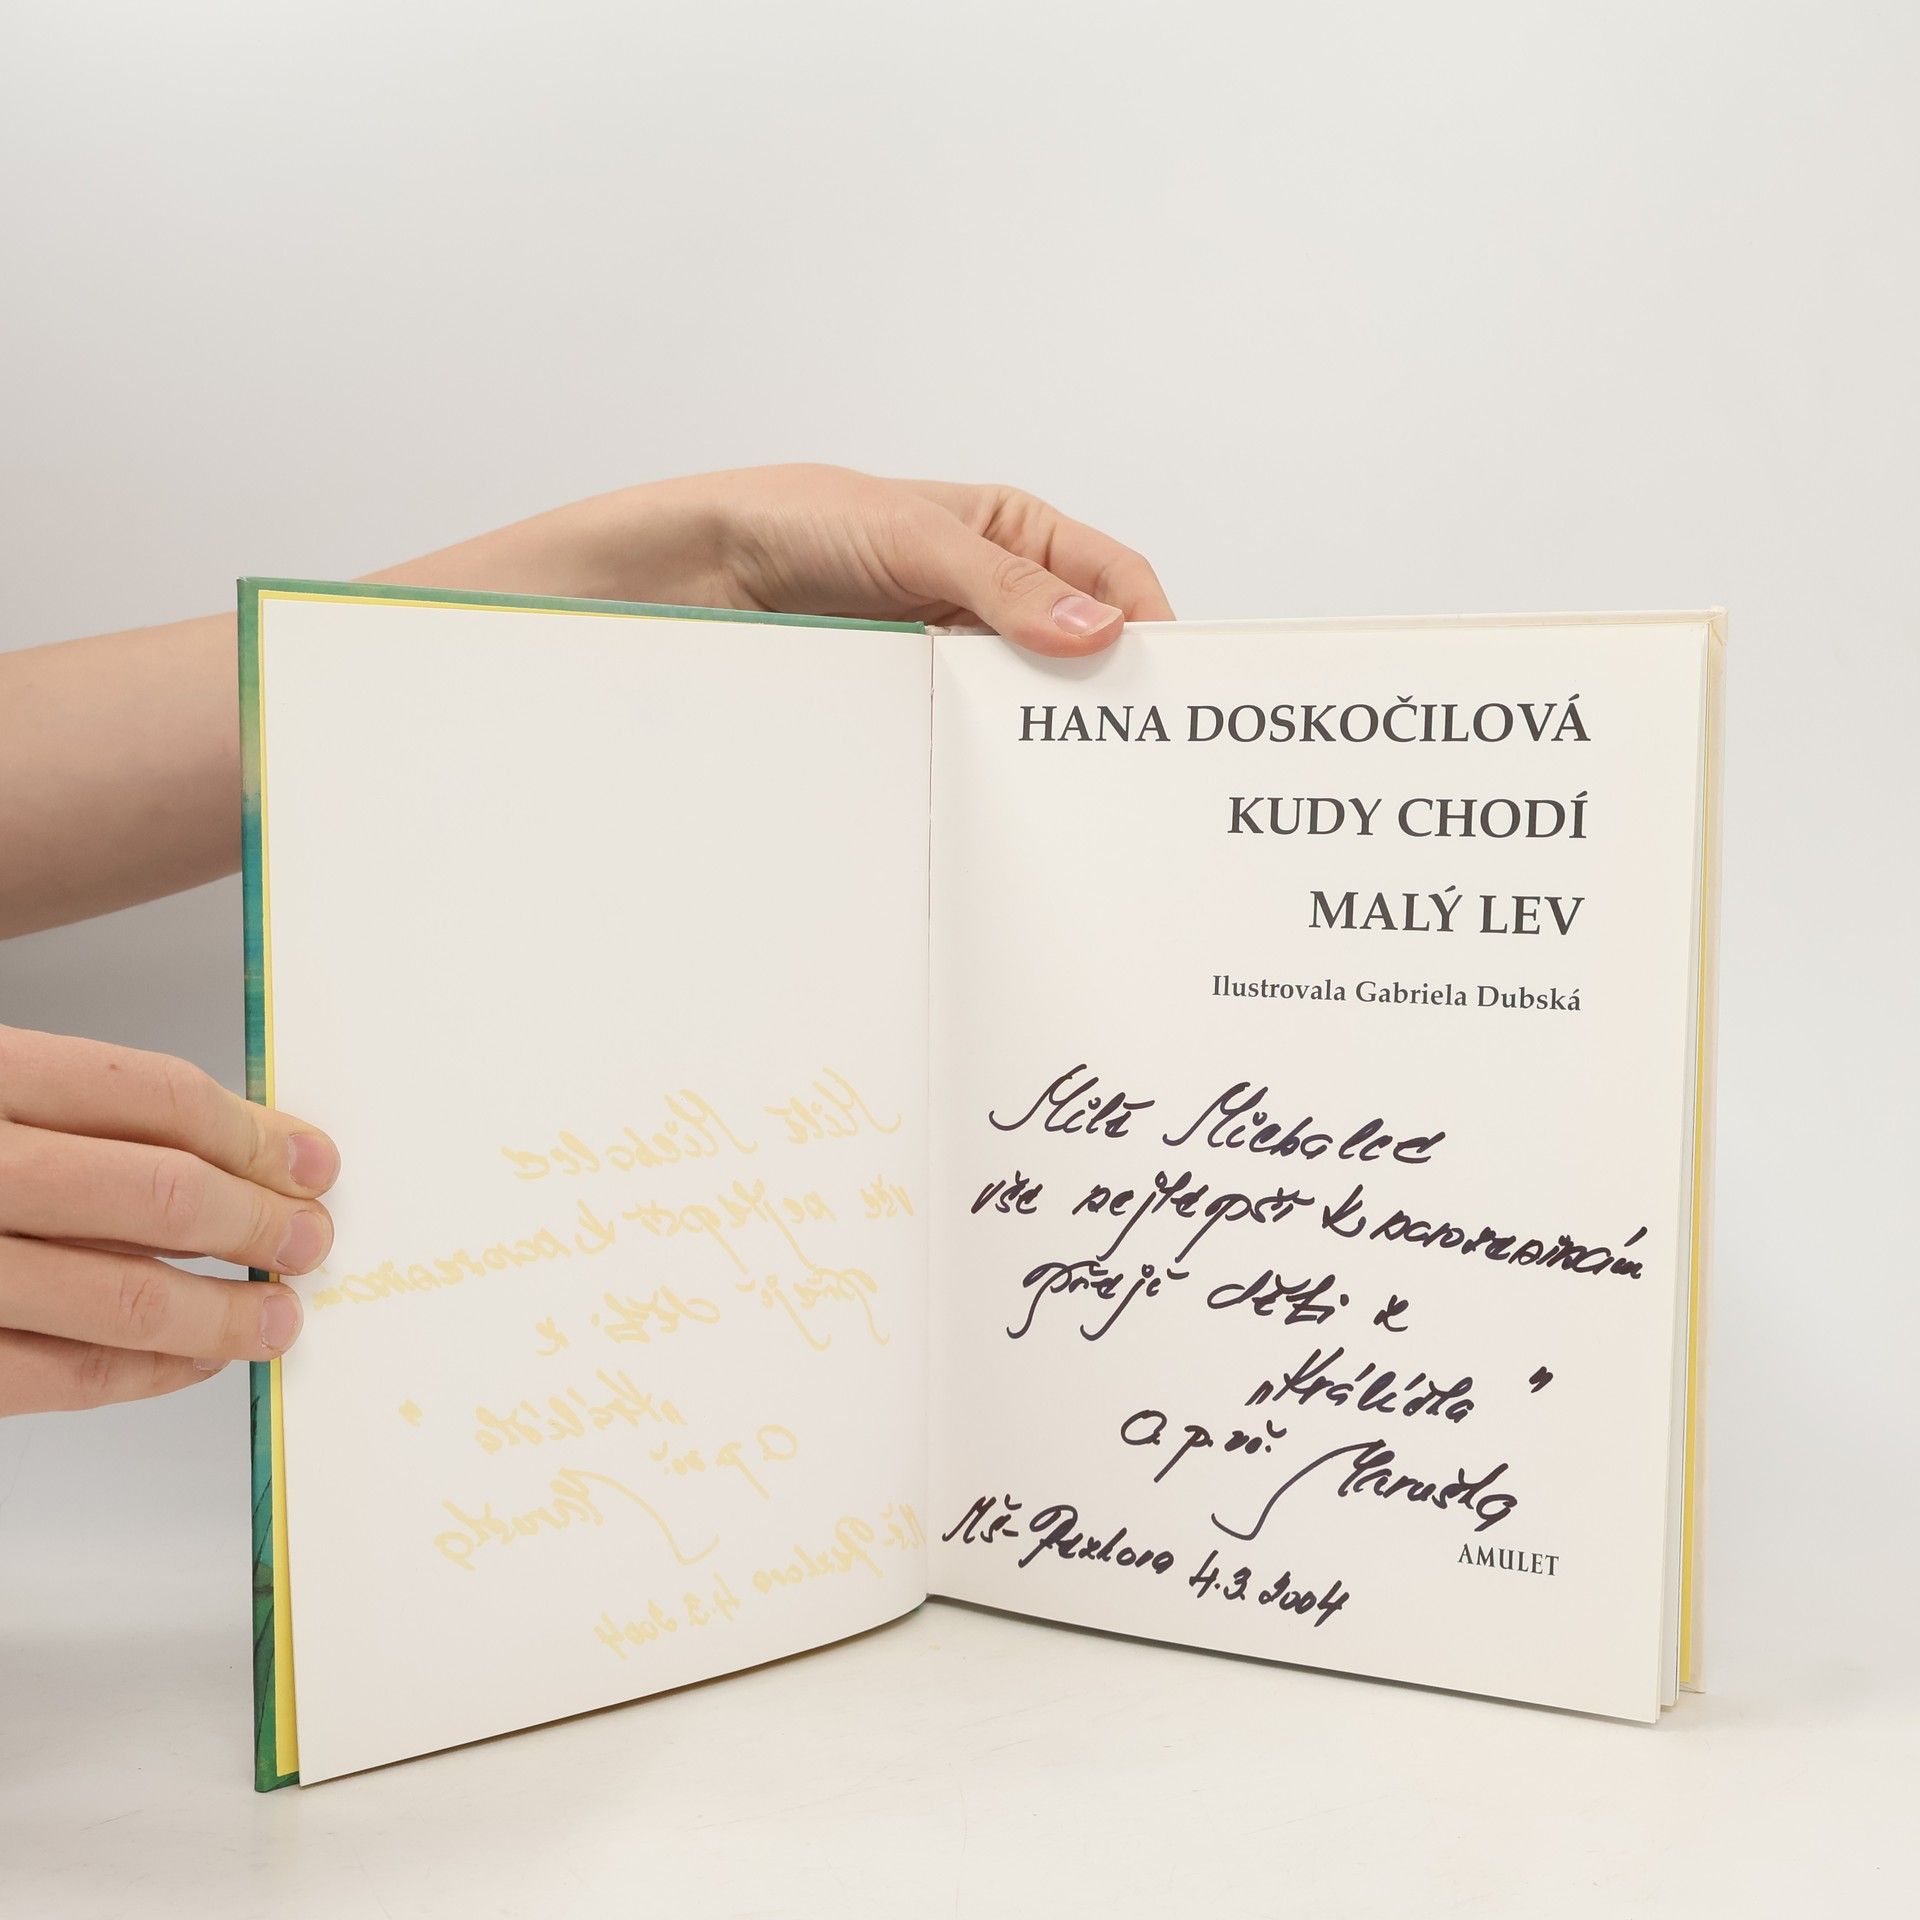 HANA DOSKOČILOVÁ
KUDY CHODÍ
MALÝ LEV
Ilustrovala Gabriela Dubská
Milé
vše nejlepší k narozeninám
přejí děti z
„Králíčka"
a p. uč. Maruška
MŠ- 4.3.2004
AMULET